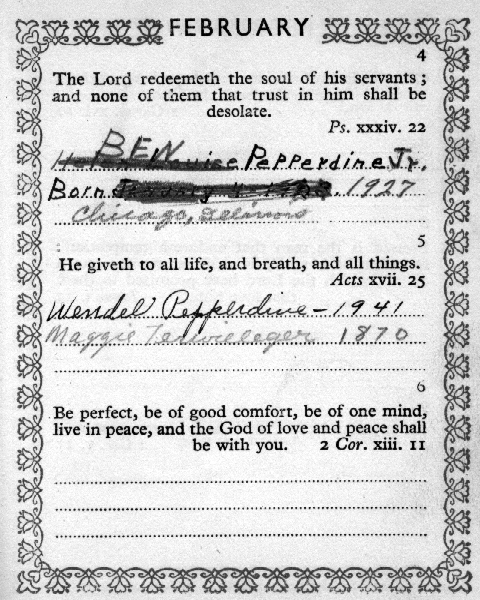 FEBRUARY
4
The Lord redeemeth the soul of his servants;
and none of them that trust in him shall be
desolate.
Ps. xxxiv. 22
BEN Pepperdine Jr.
Born 1927
Chicago, Illinois
5
He giveth to all life, and breath, and all things.
Acts xvii. 25
Wendel Pepperdine - 1941
Maggie 1870
6
Be perfect, be of good comfort, be of one mind,
live in peace, and the God of love and peace shall
be with you. 2 Cor. xiii. 11